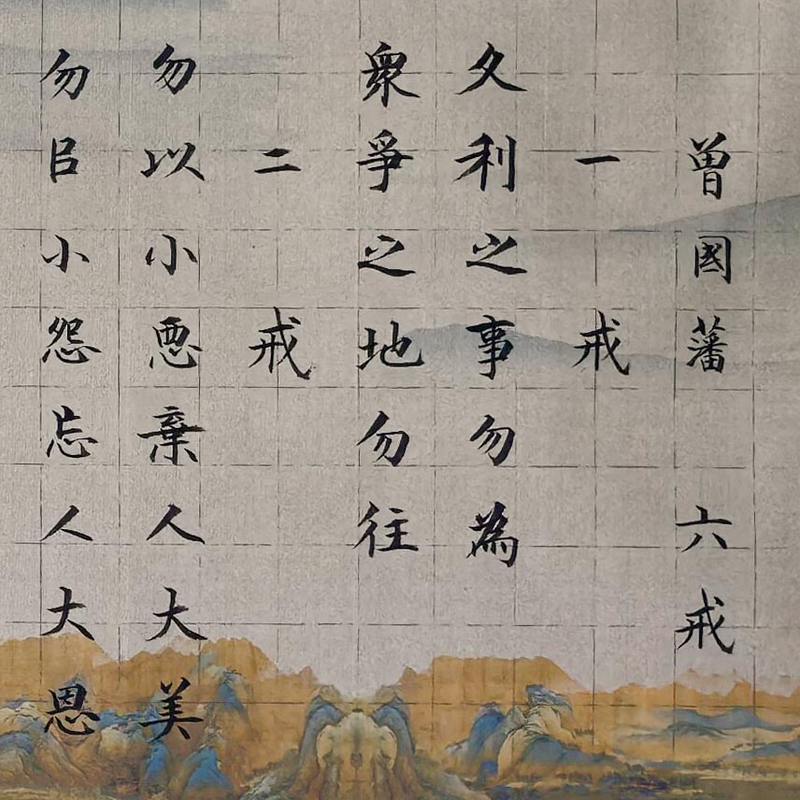 曾國藩 六戒
一戒
久利之事勿為
衆爭之地勿往
二戒
勿以小惡棄人大美
勿㠯小怨忘人大恩